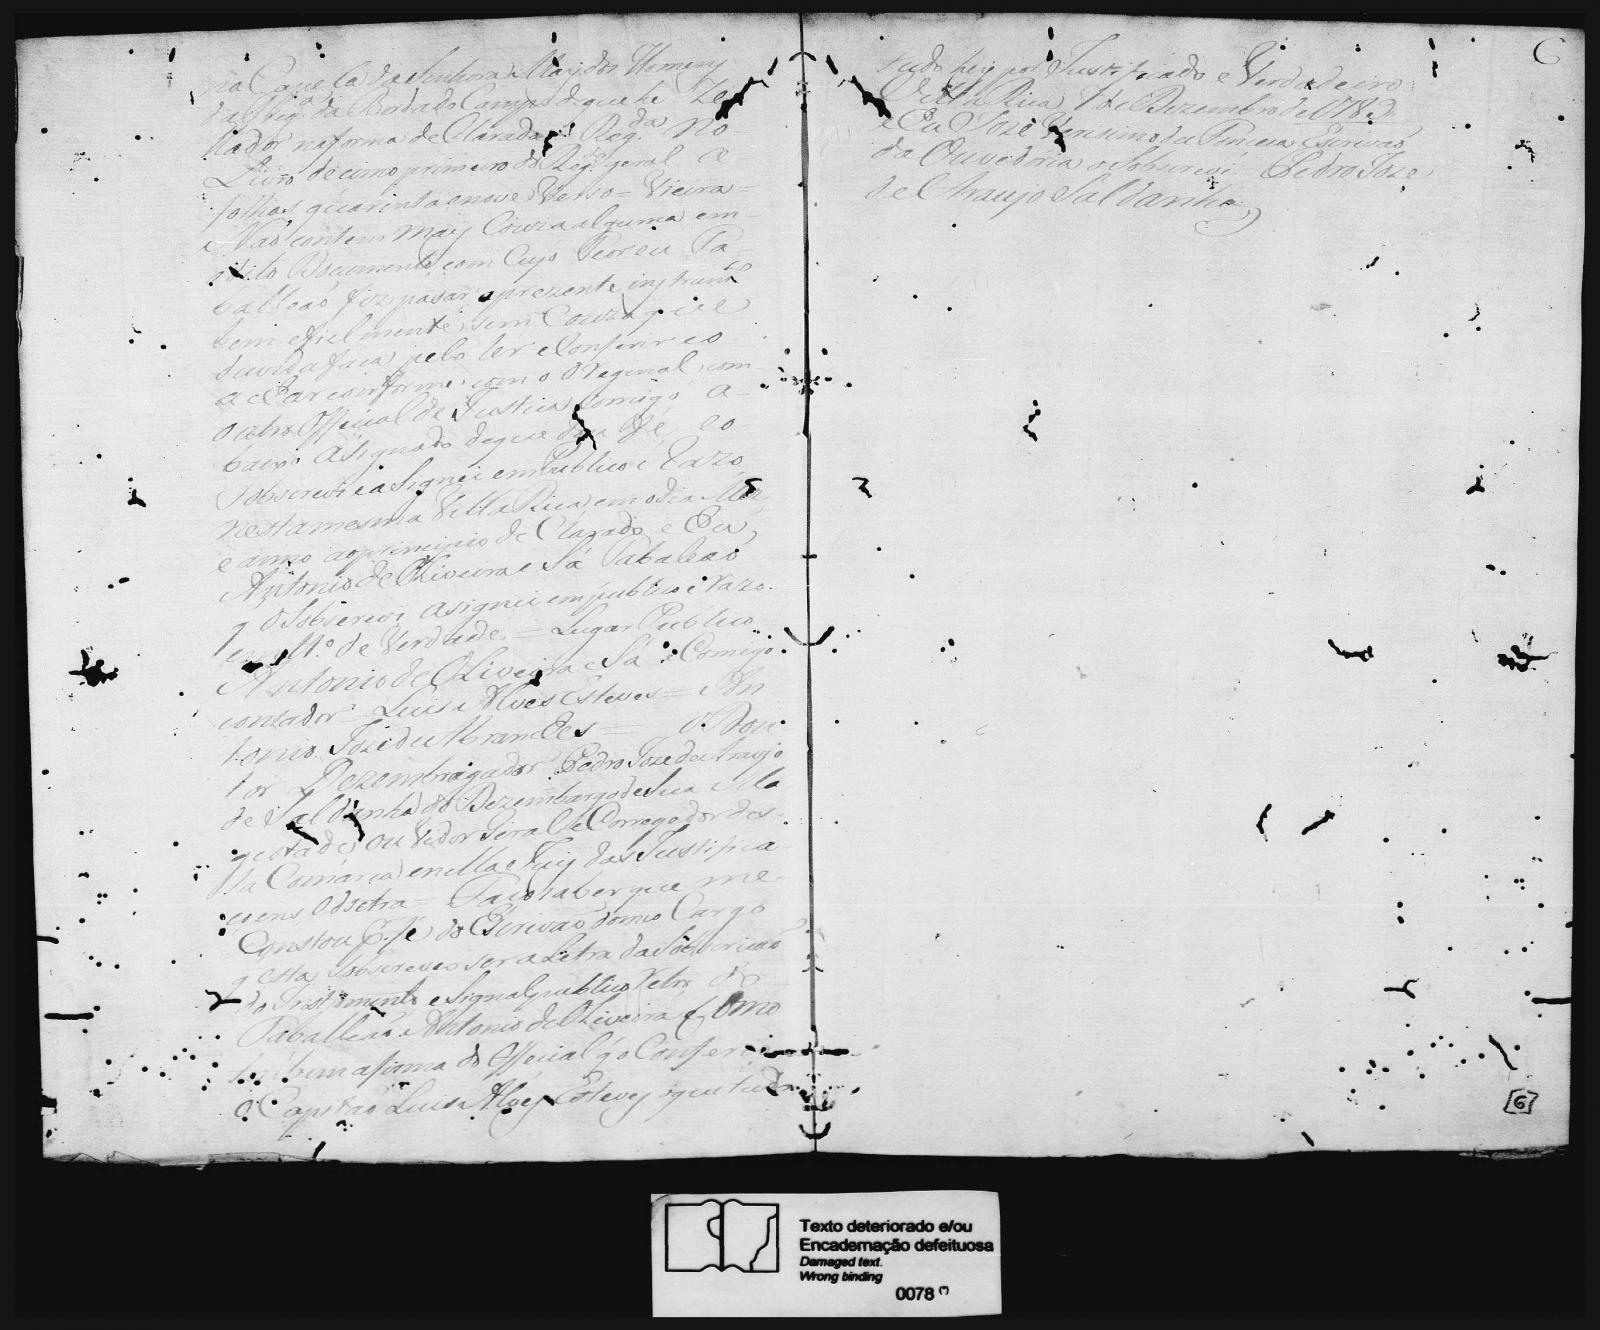 na Capella da Senhora May dos Homens
da freg.ª da Borda do Campo de que he Ze
lador na forma de Clarada Reg.da No
Livro decimo primeiro do Reg.º geral a
folhas quarinta enove Verso = Vieira =
Não contem mais Couza alguma em
o dito Documento com Cujo Theor eu Ta
balleaõ fiz pasar o prezente instrum.to
bem efielmente sem Couza que
duvida faça pelo ler eConferir e o
achar conforme com o Original com
outro Official de Justiça Comigo a
baixo asignado de que dou fé e o
Sobscrevi e a Signei em Publico e Razo
nesta mesma Villa Rica em o dia Mes
e anno ao principio de Clarado e Eu
Antonio de Oliveira e Sá Tabaleaõ
q o Sobscrevi asignei em publico e razo.
em tt.º de Verdade = Lugar Publico
Antonio de Oliveira e Sá e Comigo
contador = Luis Alves Esteves = An
tonio Joze de Abranches = O Dou
tor Dezembragador Pedro Joze de Araujo
de Saldanha do Dezembargo de Sua Ma
gestade Ouvidor Geral e Corregedor des
ta Comarca enella Juiz das Justifica
coens Odsetra = Faço saber que me
Constou p.r fé do Escrivaõ do meo Cargo
q esta Sobscreveo ser a Letra da Sobscriçaõ
do Instromento e Signal publico Retro do
Taballeaõ Antonio de Oliveira e como
tambem a firma do Official q o Conferio
o Capitaõ Luis Alves Esteves o que tudo
tudo hey por Justificado e Verdadeiro
Villa Rica 1 de Dezembro de 1783
e Eu Joze Verissimo da Fonceca Escrivaõ
da Ouvidoria o Sobscrevi Pedro Joze
de Araujo Saldanha
[6]
Texto deteriorado e/ou
Encadernação defeituosa
Damaged text.
Wrong binding
0078